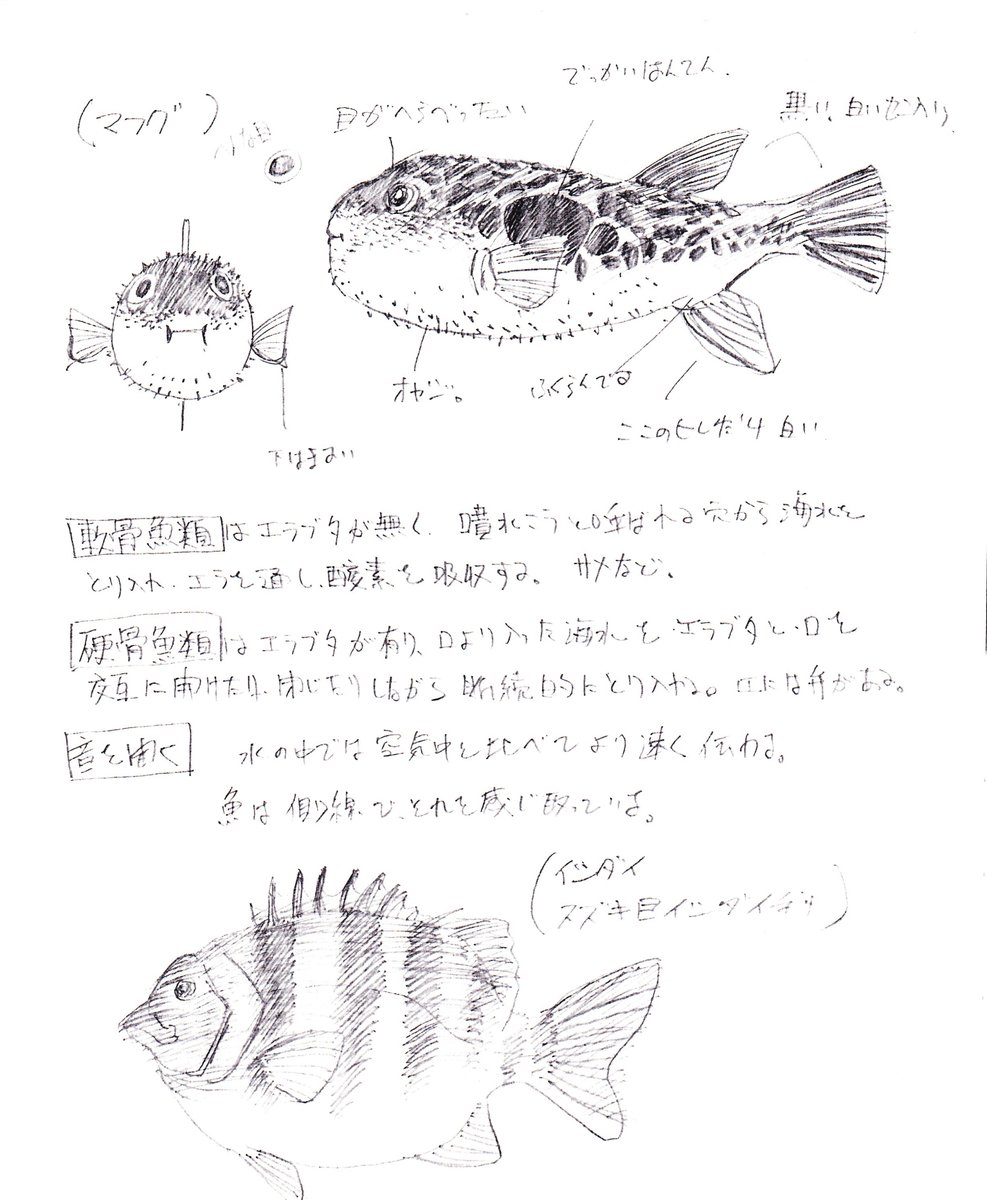 でっかいはんてん.
(マフグ)
目がへらべったい
黒い、白いせん入り.
オヤジ。
ふくらんでる
ここのヒレだけ白い
下はまるい
軟骨魚類はエラブタが無く、噴水こうと呼ばれる穴から海水を
とり入れ、エラを通し、酸素を吸収する。サメなど。
硬骨魚類はエラブタが有り、口より入った海水をエラブタと口を
交互に開けたり、閉じたりしながら断続的にとり入れる。口には弁がある。
音を聞く 水の中では空気中と比べてより速く伝わる。
魚は側線で、それを感じ取っている。
(イシダイ
スズキ目イシダイ科)